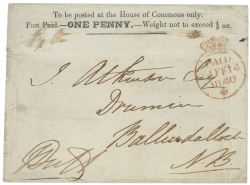 To be posted at the House of Commons only.
Post Paid.—ONE PENNY.—Weight not to exceed ½ oz.
PAID
14
1840
J. Atkinson Esq
Drumin
Ballindalloch
N.B.